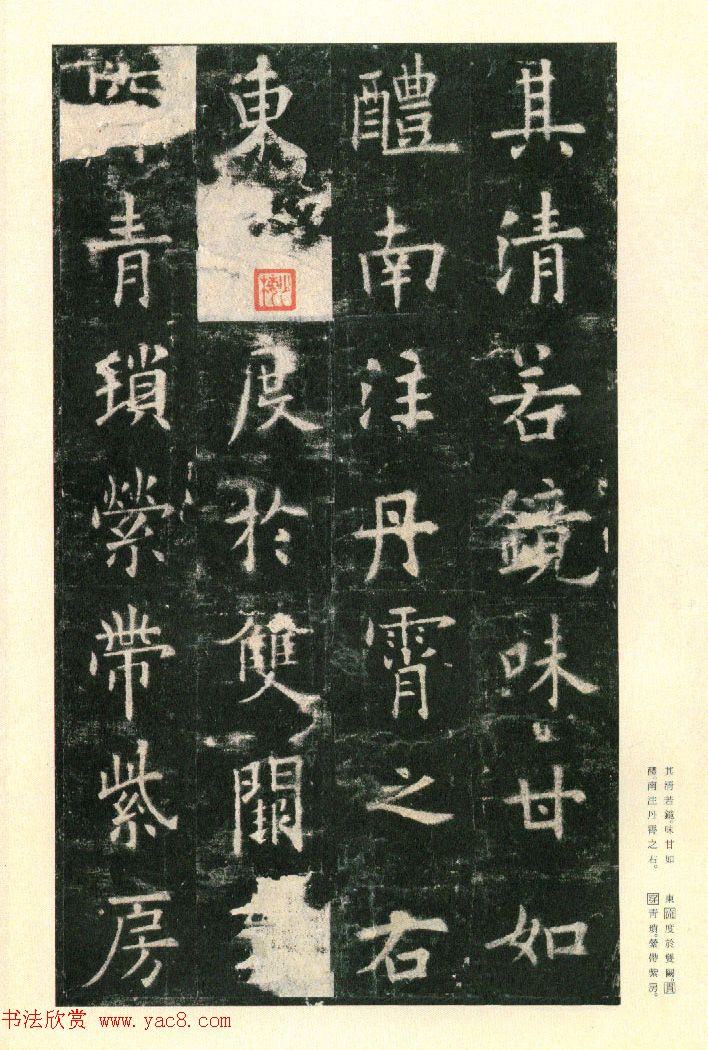 其清若鏡味甘如
醴南注丹霄之右
東度於雙闕
青瑣縈帶紫房
其清若鏡。味甘如
醴。南注丹霄之右。
東流度於雙闕。貫
穿青瑣。縈帶紫房。
书法欣赏 www.yac8.com